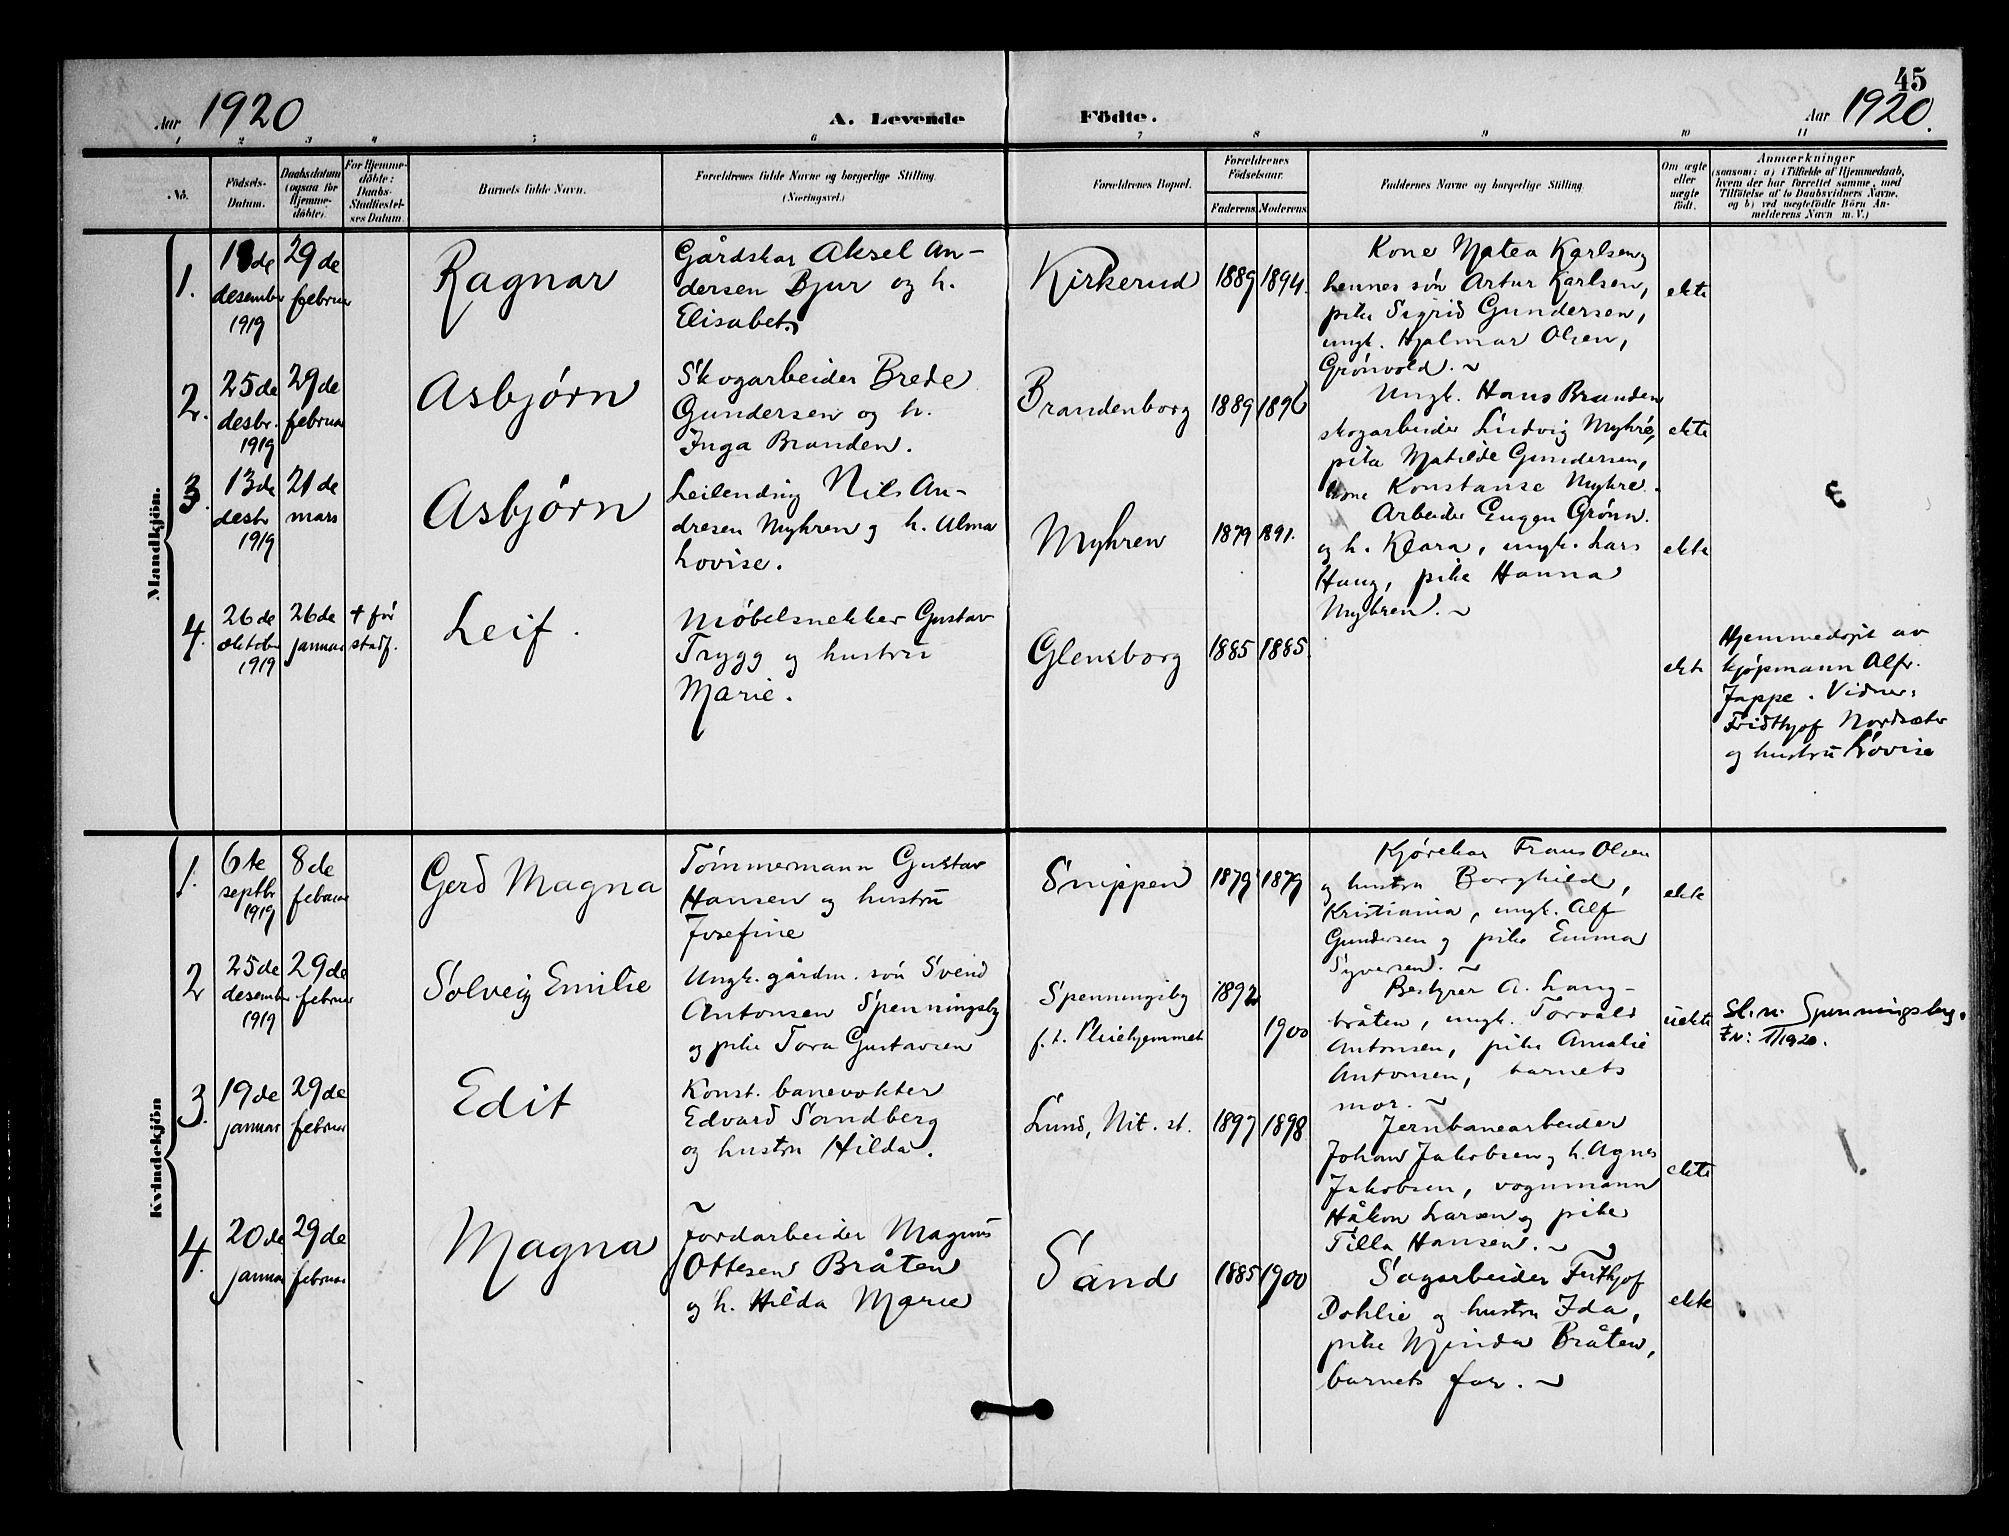 45
Aar 1920
A. Levende Födte.
Aar 1920.
1 2 3 4 5 6 7 8 9 10 11
No.
Födsels-
Datum.
Daabsdatum
(ogsaa for
Hjemme-
döbte).
For Hjemme-
döbte:
Daabs-
Stadfæstel-
ses Datum.
Barnets fulde Navn.
Forældrenes fulde Navne og borgerlige Stilling.
(Næringsvei.)
Forældrenes Bopæl.
Forældrenes
Födselsaar.
Faderens
Moderens
Faddernes Navne og borgerlige Stilling.
Om ægte
eller
uægte
födt.
Anmærkninger
(saasom: a) i Tilfælde af Hjemmedaab,
hvem der har forrettet samme, med
Tilföielse af to Daabsvidners Navne,
og b) ved uægtefödte Börn An-
melderens Navn m. V.)
Mandkjön.
1.
18 de
desember
1919
29 de
februar
Ragnar
Gårdskar Aksel An-
dersen Bjur og h.
Elisabet.
Kirkerud
1889
1894.
Kone Matea Karlsen og
hennes søn Artur Karlsen,
pike Sigrid Gundersen,
ungk. Hjalmar Olsen,
Grønvold. ~
ekte
2.
25 de
desbr.
1919
29 de
februar
Asbjørn
Skogarbeider Brede
Gundersen og h.
Inga Branden.
Brandenborg
1889
1896
Ungk. Hans Branden
skogarbeider Ludvig Myhre,
pike Matilde Gundersen,
kone Konstanse Myhre.
ekte
3.
13 de
desbr
1919
21 de
mars
Asbjørn
Leilending Nils An-
dresen Myhren og h. Alma
Lovise.
Myhren
1879
1891.
Arbeider Eugen Grønn.
og h. Klara, ungk. Lars
Haug, pike Hanna
Myhren. ~
ekte
4.
26 de
oktober
1919
26 de
januar
+ før
stadf.
Leif.
Møbelsnekker Gustav
Trygg og hustru
Marie.
Glenborg
1885
1885.
ekte
Hjemmedøpt av
kjøpmann Alfr.
Jappe. Vidner:
Fridthjof Nordsæter
og hustru Lovise
Kvindekjön
1.
6 te
septbr
1919
8 de
februar
Gerd Magna
Tømmermann Gustav
Hansen og hustru
Josefine
Snippen
1879
1879
Kjørekar Frans Olsen
og hustru Borghild,
Kristiania, ungk. Alf
Gundersen og pike Emma
Syversen. ~
ekte
2
25 de
desember
1919
29 de
februar
Solveig Emilie
Ungk. gårdm. søn Svend
Antonsen Spenningsby
og pike Tora Gustavsen
Spenningsby
f. t. Pleiehjemmet
1892
1900
Bestyrer A. Lang-
bråten, ungk. Torvald
Antonsen, pike Amalie
Antonsen, barnets
mor. ~
uekte
Sl. n. Spenningsby.
1920.
3.
19 de
januar
29 de
februar
Edit
Konst. banevokter
Edvard Sandberg
og hustru Hilda.
Lund, Nit. st.
1897
1898
Jernbanearbeider
Johan Jakobsen og h. Agnes
Jakobsen, vognmann
Håkon Larsen og pike
Tilla Hansen. ~
ekte
4.
20 de
januar
29 de
februar
Magna
Jordarbeider Magnus
Ottesen Bråten
og h. Hilda Marie
Sand
1885
1900
Sagarbeider Frithjof
Dohlie og hustru Ida,
pike Minda Bråten,
barnets far. ~
ekte